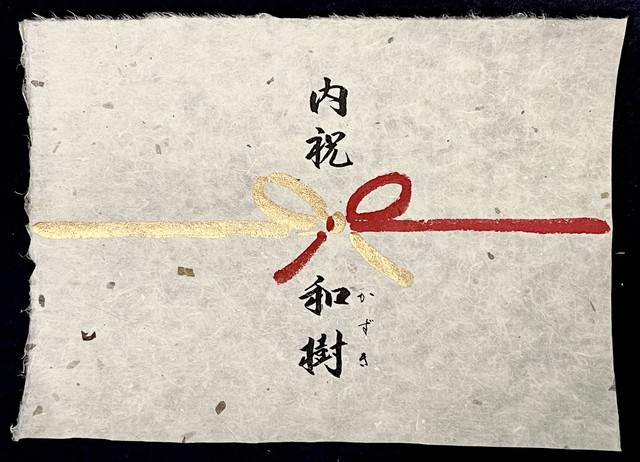 内祝
和樹
かずき